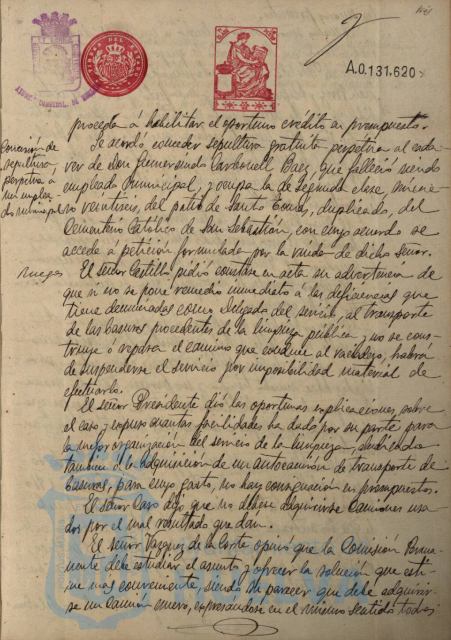 A.0.131.620
proceda á habilitar el oportuno crédito en presupuesto.
Concesión de
sepultura
perpetua á
un emplea-
do municipal
Se acordó conceder sepultura gratuita perpetua al cada-
ver de don Gumersindo Carbonell Baez, que falleció siendo
empleado municipal, y ocupa la de segunda clase, núme-
ro veintiseis, del patio de Santo Tomás, duplicado, del
Cementerio Católico de San Sebastián, con cuyo acuerdo se
accede á petición formulada por la viuda de dicho señor.
Ruegos
El señor Castilla pidió constase en acta su advertencia de
que si no se pone remedio inmediato á las deficiencias que
tiene denunciadas como Delegado del servicio, al transporte
de las basuras procedentes de la limpieza pública, y no se cons-
truye ó repara el camino que conduce al vaciadero, habrá
de suspenderse el servicio por imposibilidad material de
efectuarlo.
El señor Presidente dió las oportunas explicaciones sobre
el caso y expuso cuantas facilidades ha dado por su parte para
la mejor organización del servicio de la limpieza, aludiendo
también á la adquisición de un autocamión de transporte de
basuras, para cuyo gasto, no hay consignación en presupuestos.
El señor Caro dijo que no deben adquirirse camiones usa-
dos por el mal resultado que dan.
El señor Vazquez de la Corte opinó que la Comisión Perma-
nente debe estudiar el asunto y ofrecer la solución que esti-
me más conveniente, siendo su parecer que debe adquirir-
se un camión nuevo, expresándose en el mismo sentido todos